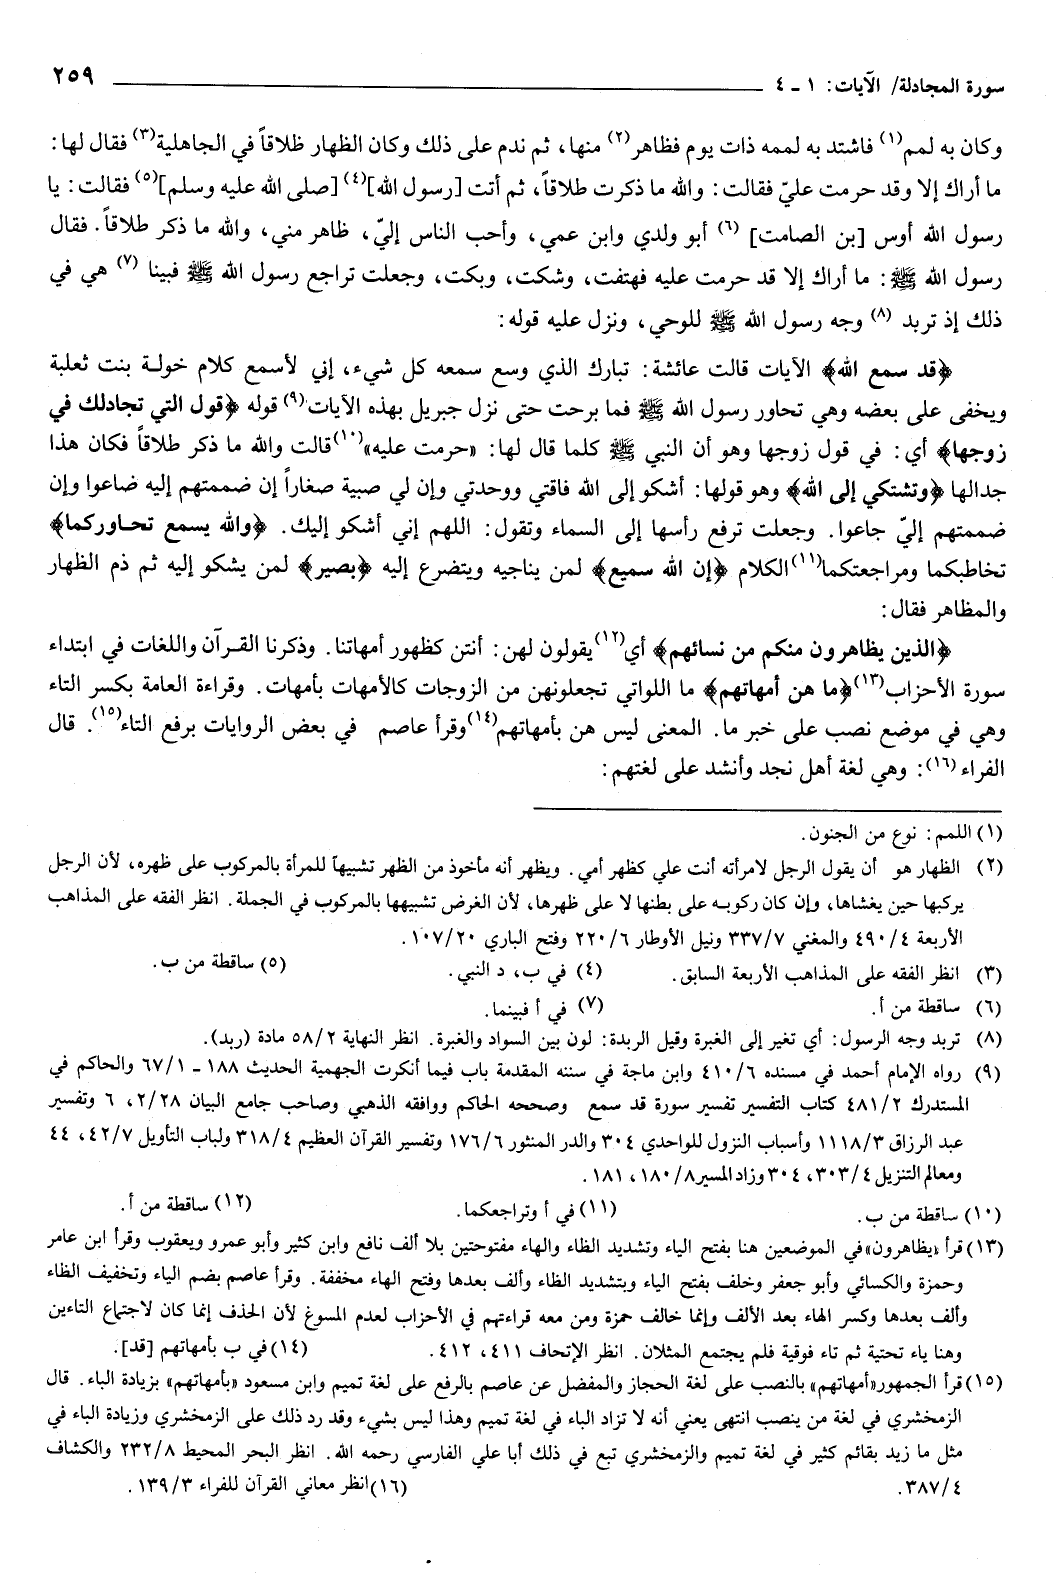 سورة المجادلة/ الآيات: ١ - ٤ ٢٥٩
وكان به لمم(١) فاشتد به لممه ذات يوم فظاهر(٢) منها، ثم ندم على ذلك وكان الظهار طلاقاً في الجاهلية(٣) فقال لها:
ما أراك إلا وقد حرمت عليّ فقالت: والله ما ذكرت طلاقاً، ثم أتت [رسول الله](٤) [صلى الله عليه وسلم](٥) فقالت: يا
رسول الله أوس [بن الصامت] (٦) أبو ولدي وابن عمي، وأحب الناس إليّ، ظاهر مني، والله ما ذكر طلاقاً. فقال
رسول الله ﷺ: ما أراك إلا قد حرمت عليه فهتفت، وشكت، وبكت، وجعلت تراجع رسول الله ﷺ فبينا (٧) هي في
ذلك إذ تربد (٨) وجه رسول الله ﷺ للوحي، ونزل عليه قوله:
﴿قد سمع الله﴾ الآيات قالت عائشة: تبارك الذي وسع سمعه كل شيء، إني لأسمع كلام خولة بنت ثعلبة
ويخفى على بعضه وهي تحاور رسول الله ﷺ فما برحت حتى نزل جبريل بهذه الآيات(٩) قوله ﴿قول التي تجادلك في
زوجها﴾ أي: في قول زوجها وهو أن النبي ﷺ كلما قال لها: «حرمت عليه»(١٠) قالت والله ما ذكر طلاقاً فكان هذا
جدالها ﴿وتشتكي إلى الله﴾ وهو قولها: أشكو إلى الله فاقتي ووحدتي وإن لي صبية صغاراً إن ضممتهم إليه ضاعوا وإن
ضممتهم إليّ جاعوا. وجعلت ترفع رأسها إلى السماء وتقول: اللهم إني أشكو إليك. ﴿والله يسمع تحاوركما﴾
تخاطبكما ومراجعتكما(١١) الكلام ﴿إن الله سميع﴾ لمن يناجيه ويتضرع إليه ﴿بصير﴾ لمن يشكو إليه ثم ذم الظهار
والمظاهر فقال:
﴿الذين يظاهرون منكم من نسائهم﴾ أي(١٢) يقولون لهن: أنتن كظهور أمهاتنا. وذكرنا القرآن واللغات في ابتداء
سورة الأحزاب(١٣) ﴿ما هن أمهاتهم﴾ ما اللواتي تجعلونهن من الزوجات كالأمهات بأمهات. وقراءة العامة بكسر التاء
وهي في موضع نصب على خبر ما. المعنى ليس هن بأمهاتهم(١٤) وقرأ عاصم في بعض الروايات برفع التاء(١٥). قال
الفراء (١٦): وهي لغة أهل نجد وأنشد على لغتهم:
(١) اللمم: نوع من الجنون.
(٢) الظهار هو أن يقول الرجل لامرأته أنت علي كظهر أمي. ويظهر أنه مأخوذ من الظهر تشبيهاً للمرأة بالمركوب على ظهره، لأن الرجل
يركبها حين يغشاها، وإن كان ركوبه على بطنها لا على ظهرها، لأن الغرض تشبيهها بالمركوب في الجملة. انظر الفقه على المذاهب
الأربعة ٤/ ٤٩٠ والمغني ٧/ ٣٣٧ ونيل الأوطار ٦/ ٢٢٠ وفتح الباري ٢٠/ ١٠٧.
(٣) انظر الفقه على المذاهب الأربعة السابق. (٤) في ب، د النبي. (٥) ساقطة من ب.
(٦) ساقطة من أ. (٧) في أ فبينما.
(٨) تربد وجه الرسول: أي تغير إلى الغبرة وقيل الربدة: لون بين السواد والغبرة. انظر النهاية ٢/ ٥٨ مادة (ربد).
(٩) رواه الإمام أحمد في مسنده ٦/ ٤١٠ وابن ماجة في سننه المقدمة باب فيما أنكرت الجهمية الحديث ١٨٨ - ١/ ٦٧ والحاكم في
المستدرك ٢/ ٤٨١ كتاب التفسير تفسير سورة قد سمع وصححه الحاكم ووافقه الذهبي وصاحب جامع البيان ٢٨/ ٢، ٦ وتفسير
عبد الرزاق ٣/ ١١١٨ وأسباب النزول للواحدي ٣٠٤ والدر المنثور ٦/ ١٧٦ وتفسير القرآن العظيم ٤/ ٣١٨ ولباب التأويل ٧/ ٤٢، ٤٤
ومعالم التنزيل ٤/ ٣٠٣، ٣٠٤ وزاد المسير ٨/ ١٨٠، ١٨١.
(١٠) ساقطة من ب. (١١) في أ وتراجعكما. (١٢) ساقطة من أ.
(١٣) قرأ «يظاهرون» في الموضعين هنا بفتح الياء وتشديد الظاء والهاء مفتوحتين بلا ألف نافع وابن كثير وأبو عمرو ويعقوب وقرأ ابن عامر
وحمزة والكسائي وأبو جعفر وخلف بفتح الياء وبتشديد الظاء وألف بعدها وفتح الهاء مخففة. وقرأ عاصم بضم الياء وتخفيف الظاء
وألف بعدها وكسر الهاء بعد الألف وإنما خالف حمزة ومن معه قراءتهم في الأحزاب لعدم المسوغ لأن الحذف إنما كان لاجتماع التاءين
وهنا ياء تحتية ثم تاء فوقية فلم يجتمع المثلان. انظر الإتحاف ٤١١، ٤١٢. (١٤) في ب بأمهاتهم [قد].
(١٥) قرأ الجمهور «أمهاتهم» بالنصب على لغة الحجاز والمفضل عن عاصم بالرفع على لغة تميم وابن مسعود «بأمهاتهم» بزيادة الباء. قال
الزمخشري في لغة من ينصب انتهى يعني أنه لا تزاد الباء في لغة تميم وهذا ليس بشيء وقد رد ذلك على الزمخشري وزيادة الباء في
مثل ما زيد بقائم كثير في لغة تميم والزمخشري تبع في ذلك أبا علي الفارسي رحمه الله. انظر البحر المحيط ٨/ ٢٣٢ والكشاف
٤/ ٣٨٧. (١٦) انظر معاني القرآن للفراء ٣/ ١٣٩.